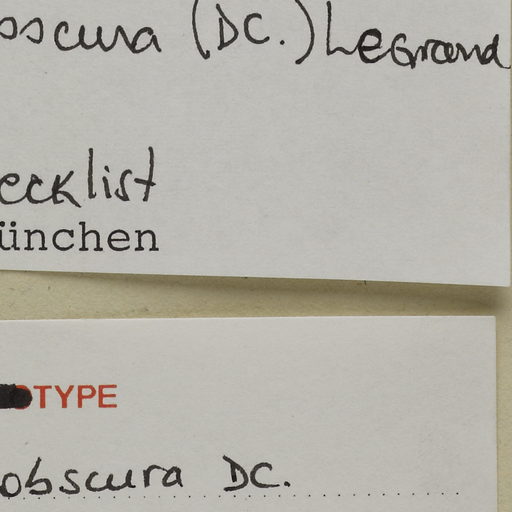 obscura (DC.) Legrand
ecklist
ünchen
OTYPE
obscura DC.